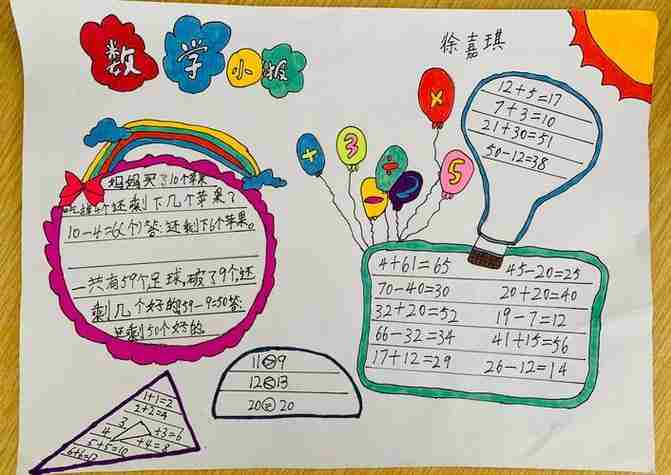 数学小报
徐嘉琪
12+5=17
7+3=10
21+30=51
50-12=38
× + 3 ÷ - 2 5
妈妈买了10个苹果
吃掉4个还剩下几个苹果了
10-4=6(个)答:还剩下6个苹果。
一共有59个足球,破了9个,还
剩几个好的59-9=50答:
还剩50个好的
4+61=65 45-20=25
70-40=30 20+20=40
32+20=52 19-7=12
66-32=34 41+15=56
17+12=29 26-12=14
11>9
12<13
20=20
1+1=2
2+2=4
3+3=6
4+4=8
5+5=10
6+6=12